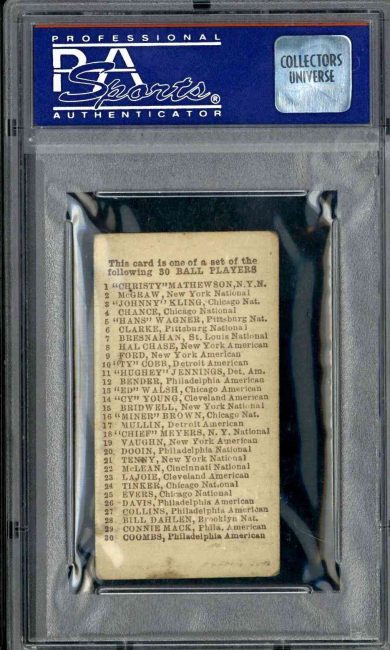 PROFESSIONAL
PSA
Sports®
AUTHENTICATOR
COLLECTORS
UNIVERSE
This card is one of a set of the
following 30 BALL PLAYERS
1 "CHRISTY" MATHEWSON, N.Y.N.
2 McGRAW, New York National
3 "JOHNNY" KLING, Chicago Nat.
4 CHANCE, Chicago National
5 "HANS" WAGNER, Pittsburg Nat.
6 CLARKE, Pittsburg National
7 BRESNAHAN, St. Louis National
8 HAL CHASE, New York American
9 FORD, New York American
10 "TY" COBB, Detroit American
11 "HUGHEY" JENNINGS, Det. Am.
12 BENDER, Philadelphia American
13 "ED" WALSH, Chicago American
14 "CY" YOUNG, Cleveland American
15 BRIDWELL, New York National
16 "MINER" BROWN, Chicago Nat.
17 MULLIN, Detroit American
18 "CHIEF" MEYERS, N. Y. National
19 VAUGHN, New York American
20 DOOIN, Philadelphia National
21 TENNY, New York National
22 McLEAN, Cincinnati National
23 LAJOIE, Cleveland American
24 TINKER, Chicago National
25 EVERS, Chicago National
26 DAVIS, Philadelphia American
27 COLLINS, Philadelphia American
28 BILL DAHLEN, Brooklyn Nat.
29 CONNIE MACK, Phila. American
30 COOMBS, Philadelphia American